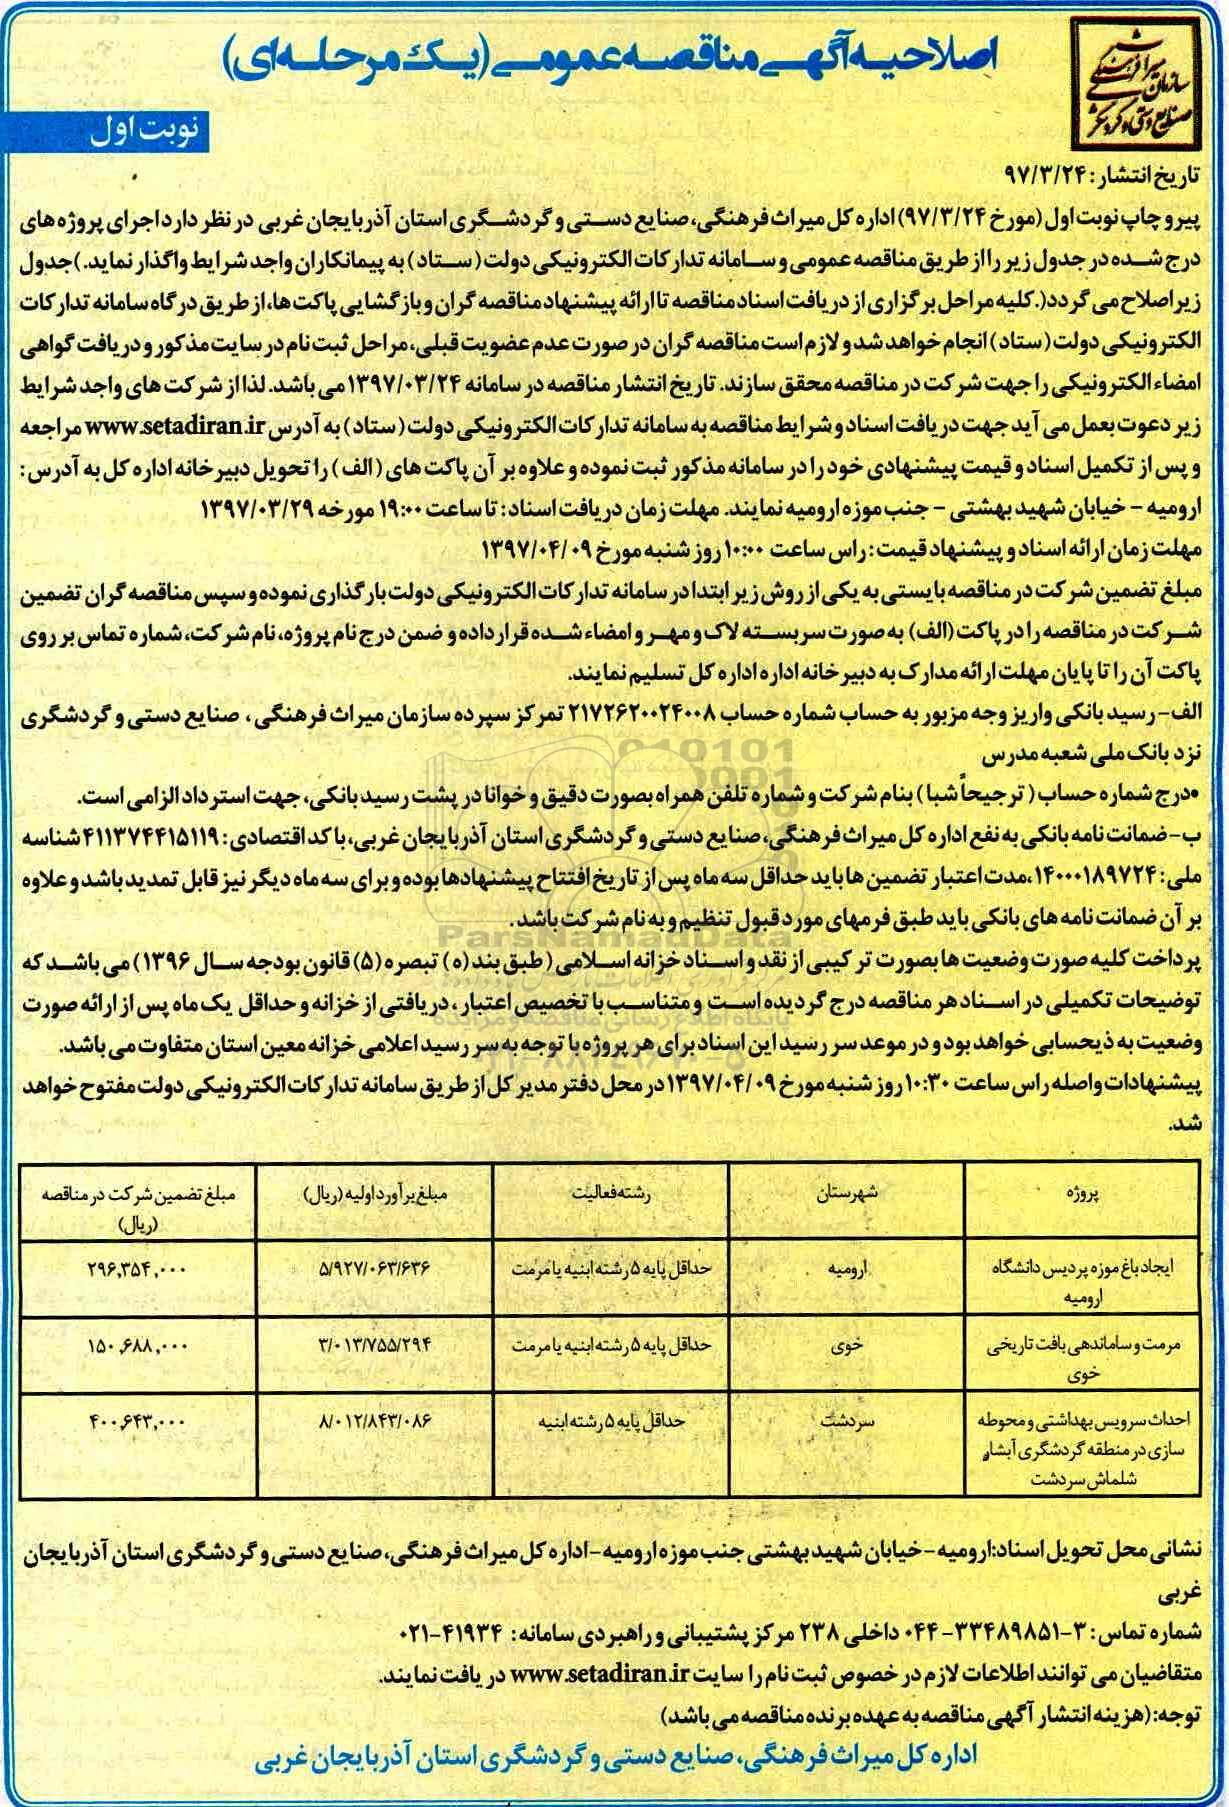 اصلاحیه آگهی مناقصه عمومی (یک مرحله‌ای)
سازمان میراث فرهنگی
صنایع دستی و گردشگری
نوبت اول
تاریخ انتشار: ۹۷/۳/۲۴
پیرو چاپ نوبت اول (مورخ ۹۷/۳/۲۴) اداره کل میراث فرهنگی، صنایع دستی و گردشگری استان آذربایجان غربی در نظر دارد اجرای پروژه های
درج شده در جدول زیر را از طریق مناقصه عمومی و سامانه تدارکات الکترونیکی دولت (ستاد) به پیمانکاران واجد شرایط واگذار نماید.)جدول
زیر اصلاح می گردد(.کلیه مراحل برگزاری از دریافت اسناد مناقصه تا ارائه پیشنهاد مناقصه گران و بازگشایی پاکت ها، از طریق درگاه سامانه تدارکات
الکترونیکی دولت (ستاد) انجام خواهد شد و لازم است مناقصه گران در صورت عدم عضویت قبلی، مراحل ثبت نام در سایت مذکور و دریافت گواهی
امضاء الکترونیکی را جهت شرکت در مناقصه محقق سازند. تاریخ انتشار مناقصه در سامانه ۱۳۹۷/۰۳/۲۴ می باشد. لذا از شرکت های واجد شرایط
زیر دعوت بعمل می آید جهت دریافت اسناد و شرایط مناقصه به سامانه تدارکات الکترونیکی دولت (ستاد) به آدرس www.setadiran.ir مراجعه
و پس از تکمیل اسناد و قیمت پیشنهادی خود را در سامانه مذکور ثبت نموده و علاوه بر آن پاکت های (الف) را تحویل دبیرخانه اداره کل به آدرس:
ارومیه - خیابان شهید بهشتی - جنب موزه ارومیه نمایند. مهلت زمان دریافت اسناد: تا ساعت ۱۹:۰۰ مورخه ۱۳۹۷/۰۳/۲۹
مهلت زمان ارائه اسناد و پیشنهاد قیمت: راس ساعت ۱۰:۰۰ روز شنبه مورخ ۱۳۹۷/۰۴/۰۹
مبلغ تضمین شرکت در مناقصه بایستی به یکی از روش زیر ابتدا در سامانه تدارکات الکترونیکی دولت بارگذاری نموده و سپس مناقصه گران تضمین
شرکت در مناقصه را در پاکت (الف) به صورت سربسته لاک و مهر و امضاء شده قرار داده و ضمن درج نام پروژه، نام شرکت، شماره تماس بر روی
پاکت آن را تا پایان مهلت ارائه مدارک به دبیرخانه اداره اداره کل تسلیم نمایند.
الف- رسید بانکی واریز وجه مزبور به حساب شماره حساب ۲۱۷۲۶۲۰۰۲۴۰۰۸ تمرکز سپرده سازمان میراث فرهنگی، صنایع دستی و گردشگری
نزد بانک ملی شعبه مدرس
•درج شماره حساب (ترجیحاً شبا) بنام شرکت و شماره تلفن همراه بصورت دقیق و خوانا در پشت رسید بانکی، جهت استرداد الزامی است.
ب- ضمانت نامه بانکی به نفع اداره کل میراث فرهنگی، صنایع دستی و گردشگری استان آذربایجان غربی، با کد اقتصادی: ۴۱۱۳۷۴۴۱۵۱۱۹ شناسه
ملی: ۱۴۰۰۰۱۸۹۷۲۴، مدت اعتبار تضمین ها باید حداقل سه ماه پس از تاریخ افتتاح پیشنهادها بوده و برای سه ماه دیگر نیز قابل تمدید باشد و علاوه
بر آن ضمانت نامه های بانکی باید طبق فرمهای مورد قبول تنظیم و به نام شرکت باشد.
ParsNamadData
پرداخت کلیه صورت وضعیت ها بصورت ترکیبی از نقد و اسناد خزانه اسلامی (طبق بند (ه) تبصره (۵) قانون بودجه سال ۱۳۹۶) می باشد که
توضیحات تکمیلی در اسناد هر مناقصه درج گردیده است و متناسب با تخصیص اعتبار، دریافتی از خزانه و حداقل یک ماه پس از ارائه صورت
وضعیت به ذیحسابی خواهد بود و در موعد سررسید این اسناد برای هر پروژه با توجه به سررسید اعلامی خزانه معین استان متفاوت می باشد.
پیشنهادات واصله راس ساعت ۱۰:۳۰ روز شنبه مورخ ۱۳۹۷/۰۴/۰۹ در محل دفتر مدیر کل از طریق سامانه تدارکات الکترونیکی دولت مفتوح خواهد
شد.
پروژه | شهرستان | رشته فعالیت | مبلغ برآورد اولیه (ریال) | مبلغ تضمین شرکت در مناقصه (ریال)
ایجاد باغ موزه پردیس دانشگاه ارومیه | ارومیه | حداقل پایه ۵ رشته ابنیه یا مرمت | ۵/۹۲۷/۰۶۳/۶۳۶ | ۲۹۶,۳۵۴,۰۰۰
مرمت و ساماندهی بافت تاریخی خوی | خوی | حداقل پایه ۵ رشته ابنیه یا مرمت | ۳/۰۱۳/۷۵۵/۲۹۴ | ۱۵۰,۶۸۸,۰۰۰
احداث سرویس بهداشتی و محوطه سازی در منطقه گردشگری آبشار شلماش سردشت | سردشت | حداقل پایه ۵ رشته ابنیه | ۸/۰۱۲/۸۴۳/۰۸۶ | ۴۰۰,۶۴۳,۰۰۰
نشانی محل تحویل اسناد: ارومیه - خیابان شهید بهشتی جنب موزه ارومیه - اداره کل میراث فرهنگی، صنایع دستی و گردشگری استان آذربایجان
غربی
شماره تماس: ۳-۳۳۴۸۹۸۵۱-۰۴۴ داخلی ۲۳۸ مرکز پشتیبانی و راهبردی سامانه: ۴۱۹۳۴-۰۲۱
متقاضیان می توانند اطلاعات لازم در خصوص ثبت نام را سایت www.setadiran.ir دریافت نمایند.
توجه: (هزینه انتشار آگهی مناقصه به عهده برنده مناقصه می باشد)
اداره کل میراث فرهنگی، صنایع دستی و گردشگری استان آذربایجان غربی